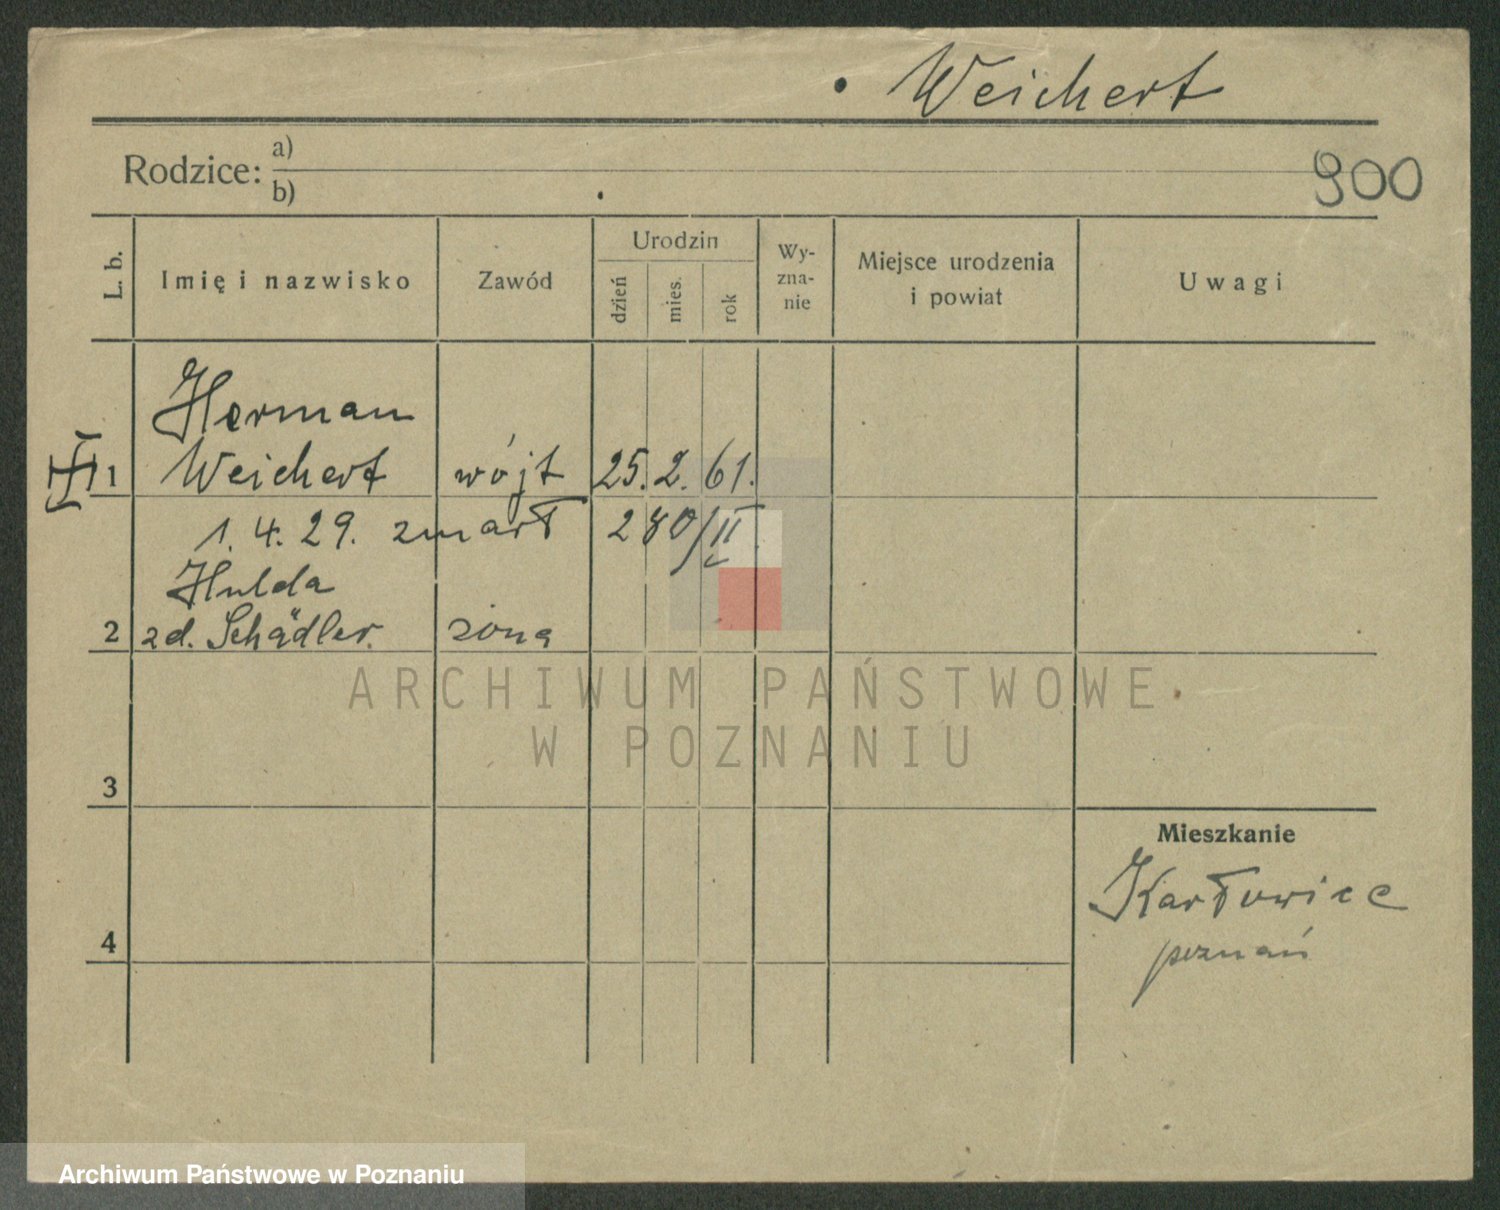 Weichert
Rodzice: a)
b)
900
L. b.
Imię i nazwisko
Zawód
Urodzin
dzień
mies.
rok
Wy-
zna-
nie
Miejsce urodzenia
i powiat
Uwagi
Herman
1 Weichert wójt 25. 2. 61.
1. 4. 29. zmarł 280/II
Hulda
2 zd. Schädler. żona
3
4
Mieszkanie
Karłowice
poznań
ARCHIWUM PAŃSTWOWE
W POZNANIU
Archiwum Państwowe w Poznaniu